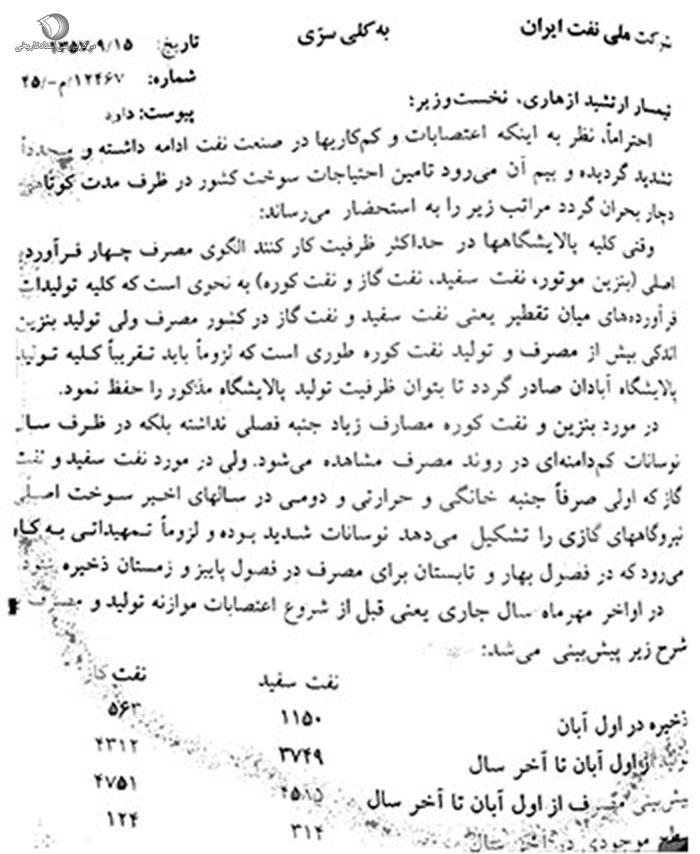 شرکت ملی نفت ایران
به کلی سرّی
تاریخ: ۱۳۵۷/۹/۱۵
شماره: ۱۲۴۶۷/م-/۴۵
پیوست: دارد
تیمسار ارتشبد ازهاری، نخست‌وزیر؛
احتراماً، نظر به اینکه اعتصابات و کم‌کاریها در صنعت نفت ادامه داشته و مجدداً
تشدید گردیده و بیم آن می‌رود تامین احتیاجات سوخت کشور در ظرف مدت کوتاهی
دچار بحران گردد مراتب زیر را به استحضار می‌رساند:
وقتی کلیه پالایشگاهها در حداکثر ظرفیت کار کنند الگوی مصرف چهار فرآورده
اصلی (بنزین موتور، نفت سفید، نفت گاز و نفت کوره) به نحوی است که کلیه تولیدات
فرآورده‌های میان تقطیر یعنی نفت سفید و نفت گاز در کشور مصرف ولی تولید بنزین
اندکی بیش از مصرف و تولید نفت کوره طوری است که لزوماً باید تقریباً کلیه تولید
پالایشگاه آبادان صادر گردد تا بتوان ظرفیت تولید پالایشگاه مذکور را حفظ نمود.
در مورد بنزین و نفت کوره مصارف زیاد جنبه فصلی نداشته بلکه در ظرف سال
نوسانات کم‌دامنه‌ای در روند مصرف مشاهده می‌شود. ولی در مورد نفت سفید و نفت
گاز که اولی صرفاً جنبه خانگی و حرارتی و دومی در سالهای اخیر سوخت اصلی
نیروگاههای گازی را تشکیل می‌دهد نوسانات شدید بوده و لزوماً تمهیداتی به کار
می‌رود که در فصول بهار و تابستان برای مصرف در فصول پاییز و زمستان ذخیره شود.
در اواخر مهرماه سال جاری یعنی قبل از شروع اعتصابات موازنه تولید و مصرف به
شرح زیر پیش‌بینی می‌شد:
نفت سفید نفت گاز
ذخیره در اول آبان ۱۱۵۰ ۵۶۳
تولید از اول آبان تا آخر سال ۳۷۴۹ ۴۳۱۲
پیش‌بینی مصرف از اول آبان تا آخر سال ۴۵۸۵ ۴۷۵۱
سطح موجودی در آخر سال ۳۱۴ ۱۲۴